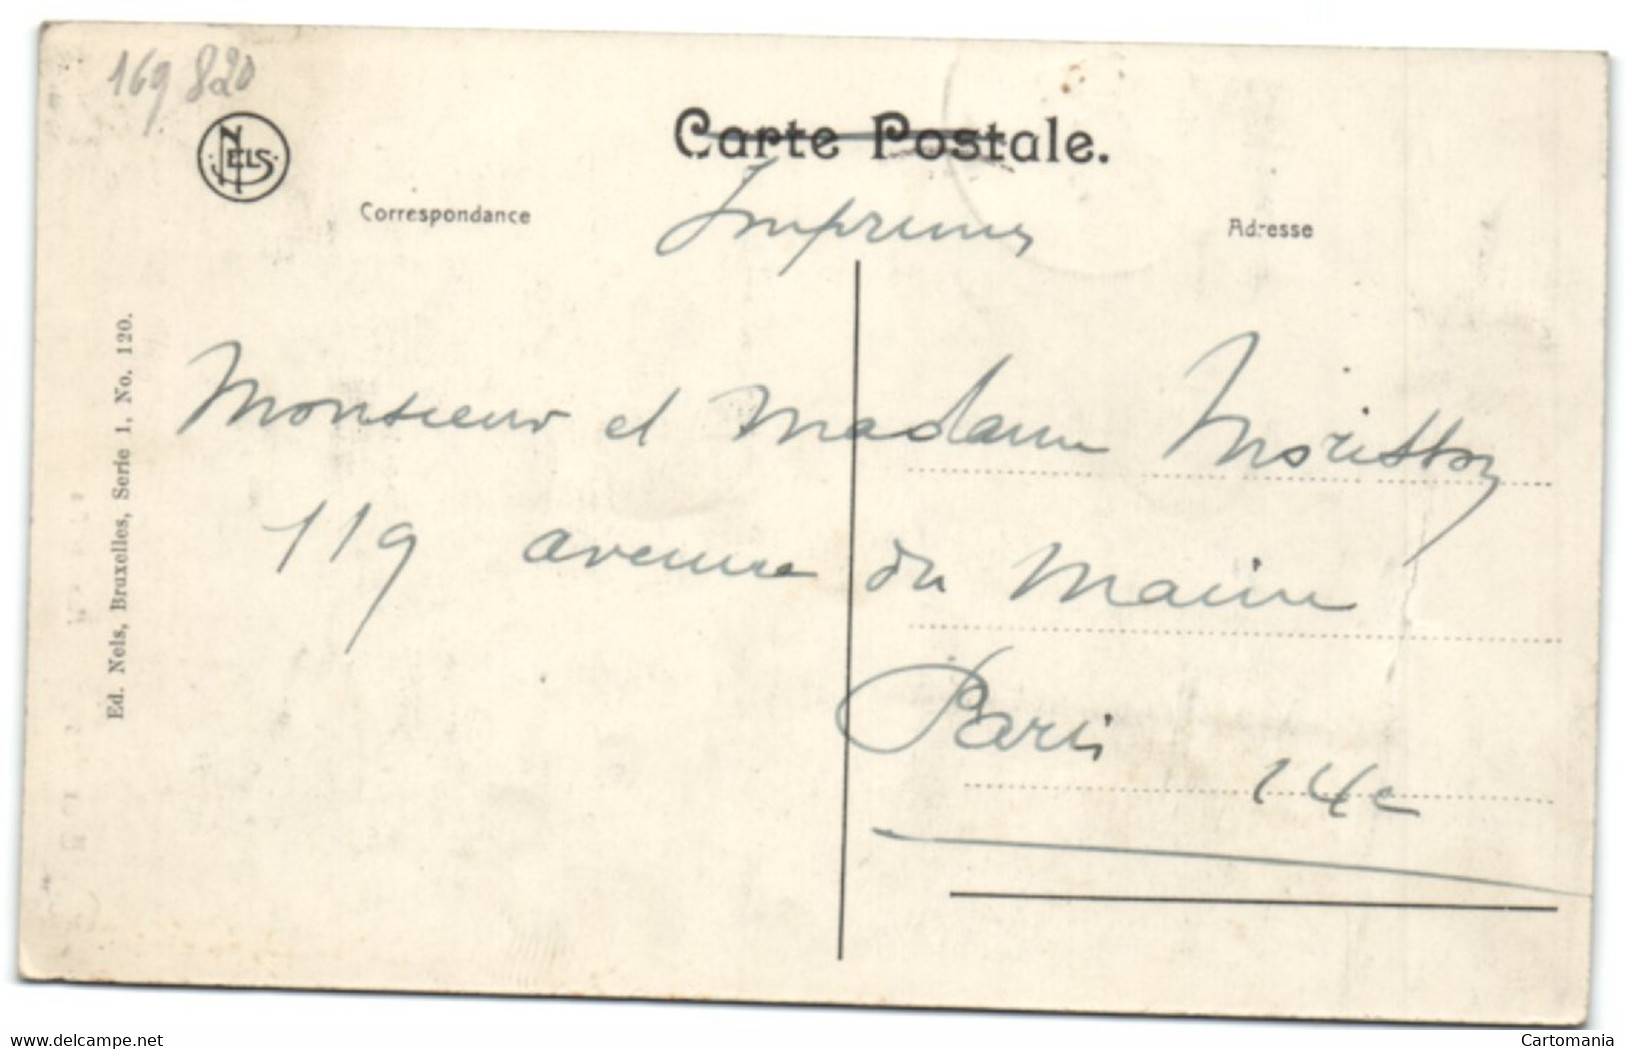 169 820
NELS
Carte Postale.
Imprimés
Correspondance
Adresse
Ed. Nels, Bruxelles, Serie 1, No. 120.
Monsieur et Madame
119 avenue du Maine
Paris
14e
www.delcampe.net
Cartomania